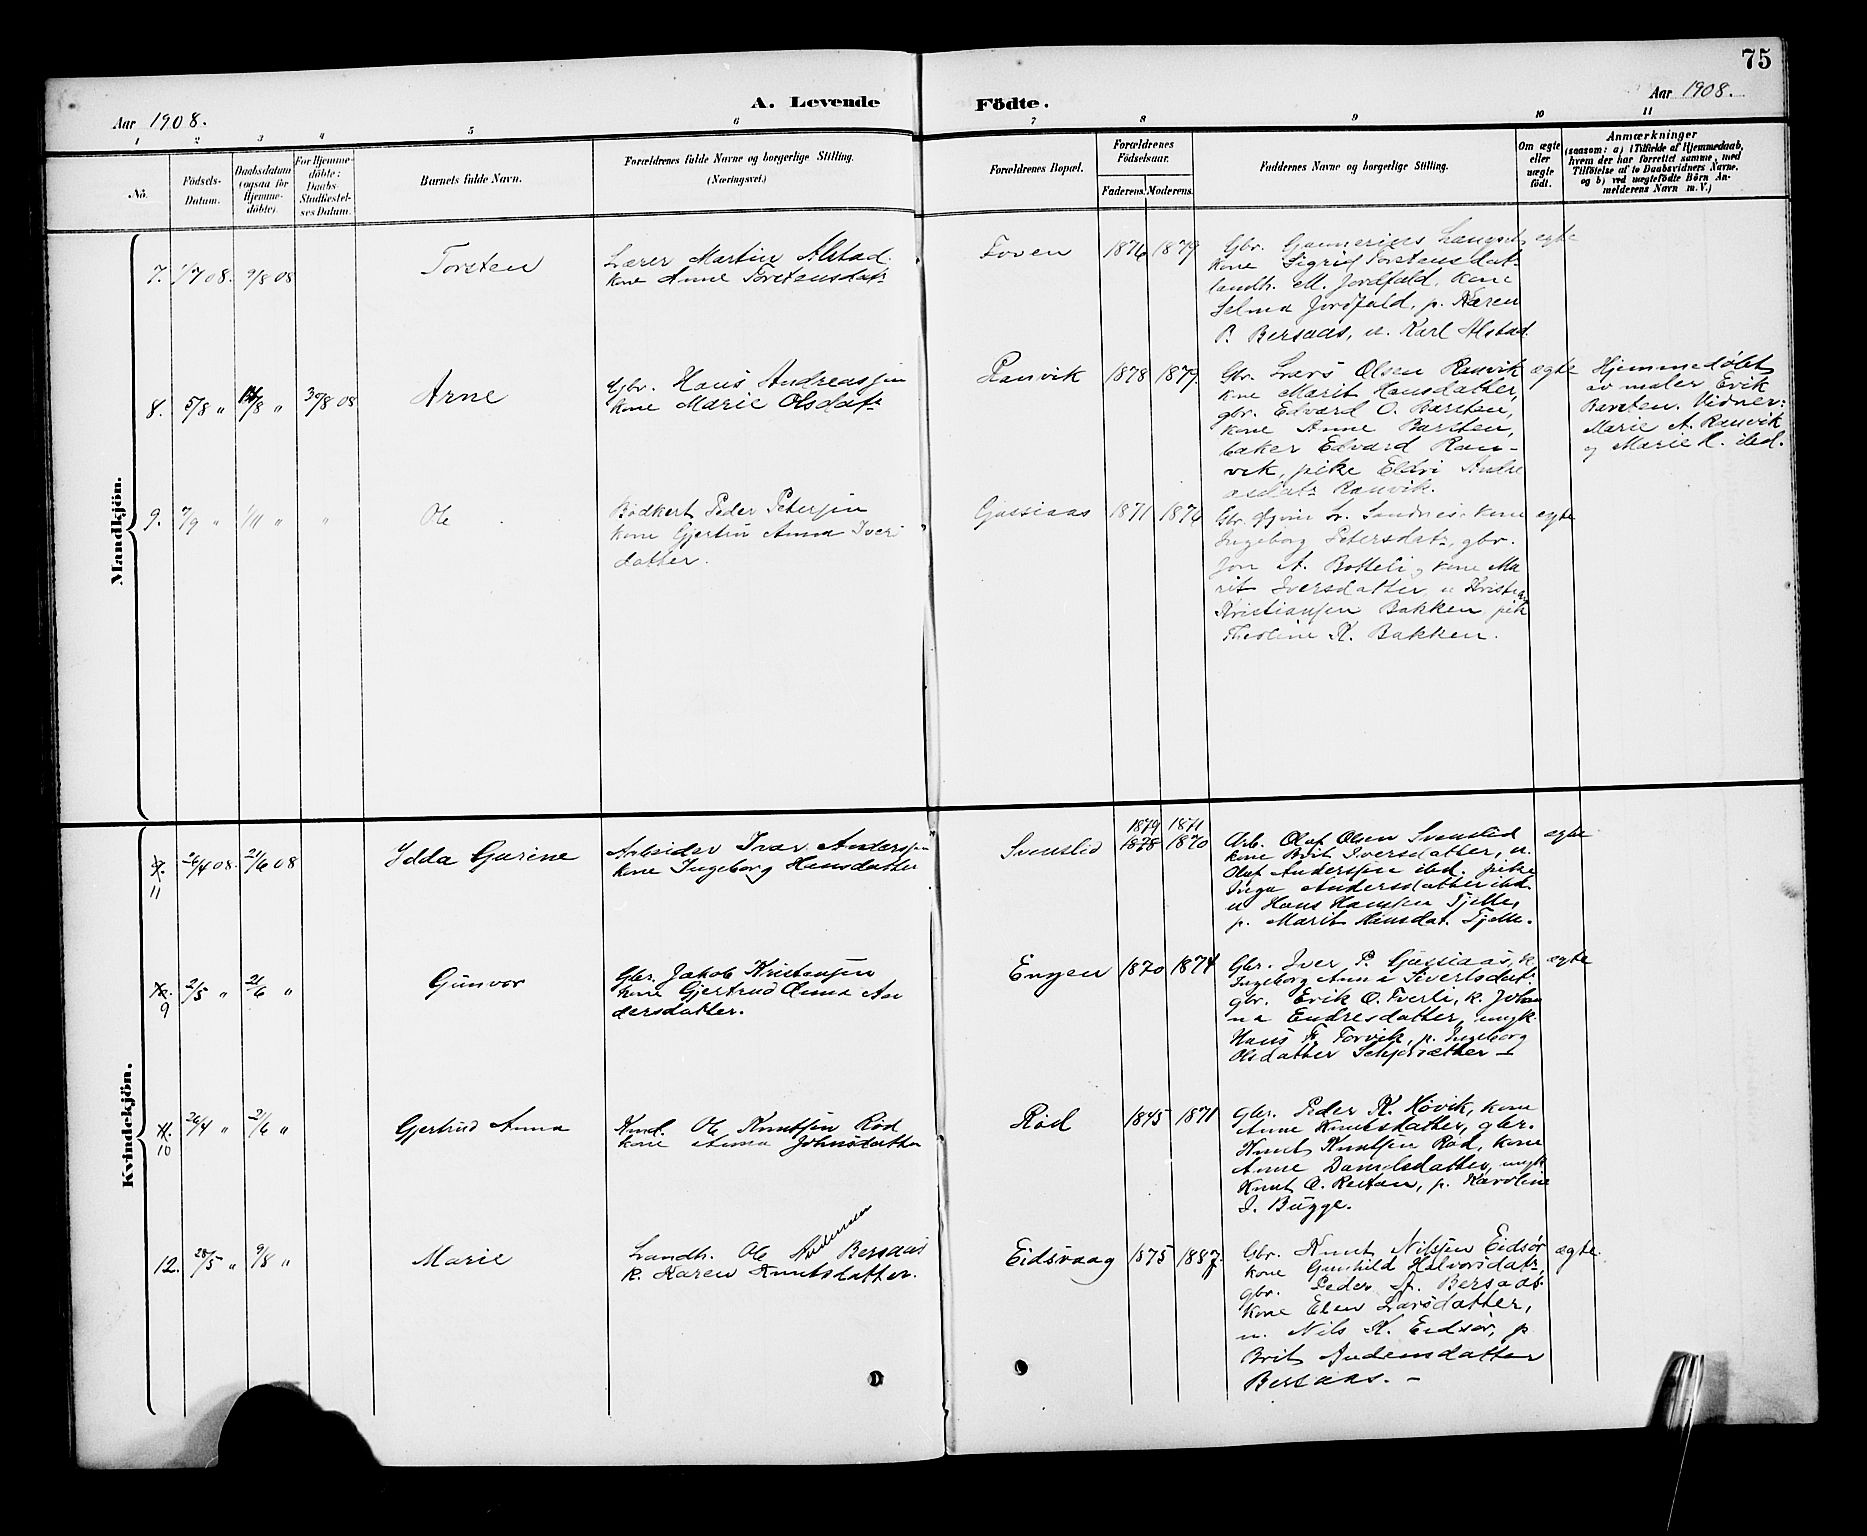 75
A. Levende Födte.
Aar 1908.
Aar 1908.
1 2 3 4 5 6 7 8 9 10 11
No.
Födsels-
Datum.
Daabsdatum
(ogsaa for
Hjemme-
döbte).
For Hjemme-
döbte:
Daabs-
Stadfæstel-
ses Datum.
Barnets fulde Navn.
Forældrenes fulde Navne og borgerlige Stilling.
(Næringsvei.)
Forældrenes Bopæl.
Forældrenes
Födselsaar.
Faderens. Moderens.
Faddernes Navne og borgerlige Stilling.
Om ægte
eller
uægte
födt.
Anmærkninger
(saasom: a) i Tilfælde af Hjemmedaab,
hvem der har forrettet samme, med
Tilföielse af to Daabsvidners Navne,
og b) ved uægtefödte Börn An-
melderens Navn m. V.)
Mandkjön.
7. 1/7 08. 9/8 08
Torsten
Lærer Martin Alstad.
kone Anne Torstensdatr
Toven
1876 1879
Gbr. Langset
kone Sigrid Torstensdat.
landh. M. Jordfald, kone
Selma Jordfald, p. Karen
P. Bersaas, u. Karl Alstad.
ægte
8. 5/8 " /8 " 30/8 08
Arne
Gbr. Hans Andreassen
kone Marie Olsdatr
Ranvik
1878 1879
Gbr. Lars Olsen Ranvik
kone Marit Hansdatter,
gbr. Edvard O. Barsten,
kone Anne Barsten,
baker Edvard Ran-
vik, pike Eldri Andre
asdatr Ranvik.
ægte
Hjemmedøbt
av maler Erik
Barsten. Vidner:
Marie A. Ranvik
og Marie H. ibd.
9. 7/9 " 1/11 " "
Ole
Bødker Peder Petersen
kone Gjertru Anna Iver
datter.
Gussiaas
1871 1876
Gbr. Sandnes, kone
Ingeborg Petersdatr, gbr.
Jon A. Botteli, kone Ma
rit Iversdatter, u Kristian
Kristiansen Bakken pik
Theoline K. Bakken.
ægte
Kvindekjön.
9.
11
26/4 08. 21/6 08
Ydda Gurine
Arbeider Ivar Anderssen
kone Ingeborg Hansdatter
Svenslid
1879 1871
1878 1870
Arb. Olaf Olsen Svenslid
kone Brit Iversdatter, u.
Olaf Anderssen ibd. pike
Inga Andersdatter ibd.
u Hans Hanssen Tjelle,
p. Marit Hansdat. Tjelle.
ægte
10.
9
2/5 " 21/6 "
Gunvor
Gbr. Jakob Kristensen
kone Gjertrud Anna An
dersdatter.
Engen
1870 1874
Gbr. Iver P. Gussiaas, k.
Ingeborg Anna Sivertsdat.
gbr. Erik O. Tverli, k. Johan
na Endresdatter, ungk.
Hans F. Torvik, p. Ingeborg
Olsdatter
ægte
11.
10
26/4 " 21/6 "
Gjertrud Anna
Knud. Ole Knutsen Rød
kone Anna Johnsdatter
Rød
1845 1871
gbr. Peder K. Høvik, kone
Anne Knutsdatter, gbr.
Knut Knutsen Rød, kone
Anne Danielsdatter, ungk
Knut O. Reitan, p. Karoline
I. Bugge.
12. 28/5 " 9/8 "
Marie
Landh. Ole Pedersen Bersaas
k. Karen Knutsdatter.
Eidsvaag
1875 1887.
Gbr. Knut Nilssen Eidsør
kone Gunhild Halvorsdatr,
gbr. Peder A. Bersaas.
kone Elen Larsdatter,
u. Nils K. Eidsør, p
Brit Andersdatter
Bersaas. –
ægte.